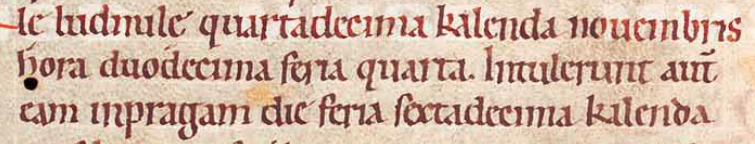 le ludmile quartadecima kalenda nouembris
hora duodecima feria quarta. Intulerunt aut̄
eam inpragam die feria sextadecima kalenda